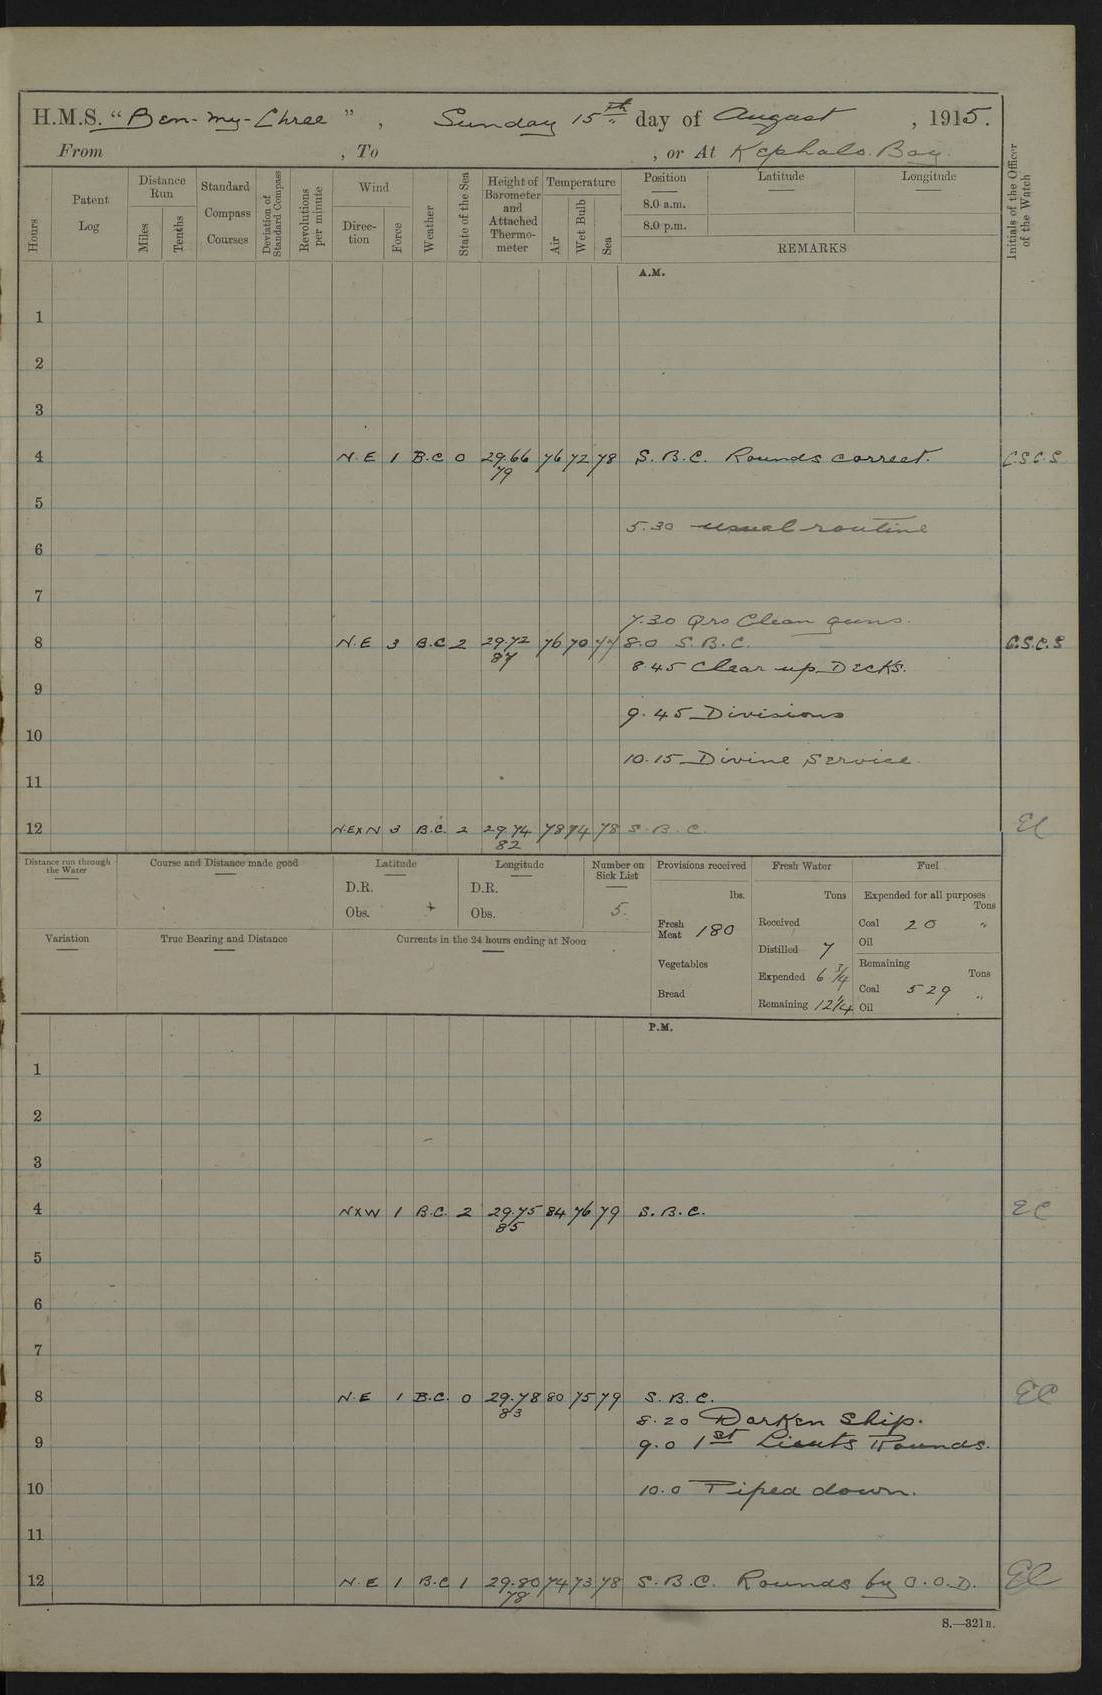 H.M.S. "Ben-my-Chree", Sunday 15th day of August, 1915.
From , To , or At Kephalo Bay
Hours
Patent Log
Distance Run
Miles
Tenths
Standard Compass Courses
Deviation of Standard Compass
Revolutions per minute
Wind
Direction
Force
Weather
State of the Sea
Height of Barometer and Attached Thermometer
Temperature
Air
Wet Bulb
Sea
Position
8.0 a.m.
8.0 p.m.
Latitude
Longitude
REMARKS
Initials of the Officer of the Watch
A.M.
1
2
3
4 N.E 1 B.C 0 29.66 76 72 78 S.B.C. Rounds correct. C.S.C.S
79
5
5.30 usual routine
6
7
7.30 Qrs Clean guns.
8 N.E 3 B.C 2 29.72 76 70 77 8.0 S.B.C. C.S.C.S
87
8.45 Clear up Decks.
9
9.45 Divisions
10
10.15 Divine Service.
11
12 N.E x N 3 B.C. 2 29.74 78 74 78 S.B.C.
82
Distance run through the Water
Course and Distance made good
Latitude
D.R.
Obs.
Longitude
D.R.
Obs.
Number on Sick List
5.
Provisions received
lbs.
Fresh Meat 180
Vegetables
Bread
Fresh Water
Tons
Received
Distilled 7
Expended 6 3/4
Remaining 12 1/4
Fuel
Expended for all purposes
Tons
Coal 20 "
Oil
Remaining
Tons
Coal 529 "
Oil
Variation
True Bearing and Distance
Currents in the 24 hours ending at Noon
P.M.
1
2
3
4 N x W 1 B.C. 2 29.75 84 76 79 S.B.C. EC
85
5
6
7
8 N.E 1 B.C. 0 29.78 80 75 79 S.B.C. EC
83
8.20 Darken Ship.
9 9.0 1st Lieuts Rounds.
10 10.0 Piped down.
11
12 N.E 1 B.C 1 29.80 74 73 78 S.B.C. Rounds by O.O.D. EC
78
S.—321B.